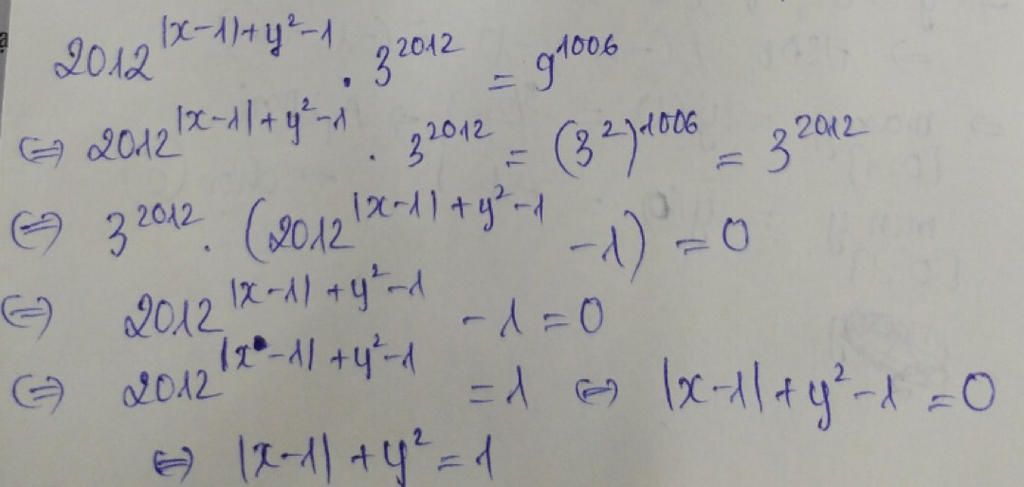 2012^{|x-1|+y²-1} . 3^{2012} = 9^{1006}
⇔ 2012^{|x-1|+y²-1} . 3^{2012} = (3²)^{1006} = 3^{2012}
⇔ 3^{2012} . (2012^{|x-1|+y²-1} - 1) = 0
⇔ 2012^{|x-1|+y²-1} - 1 = 0
⇔ 2012^{|x-1|+y²-1} = 1 ⇔ |x-1|+y²-1 = 0
⇔ |x-1|+y² = 1